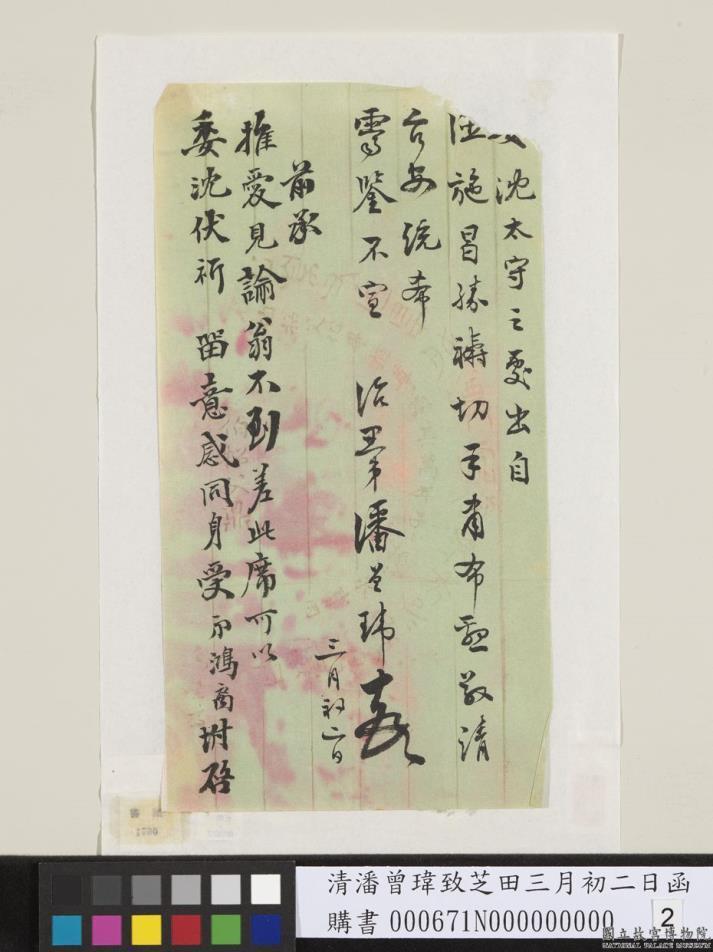 沈太守之處出自
施曷勝禱切手肅布懇敬請
台安統希
霽鑒不宣 治弟潘曾瑋頓
三月初二日
前承
推愛見諭翁不到差此席可以
委沈伏祈 留意感同身受 鴻裔坿啓
清潘曾瑋致芝田三月初二日函
購書 000671N000000000
2
國立故宮博物院
NATIONAL PALACE MUSEUM